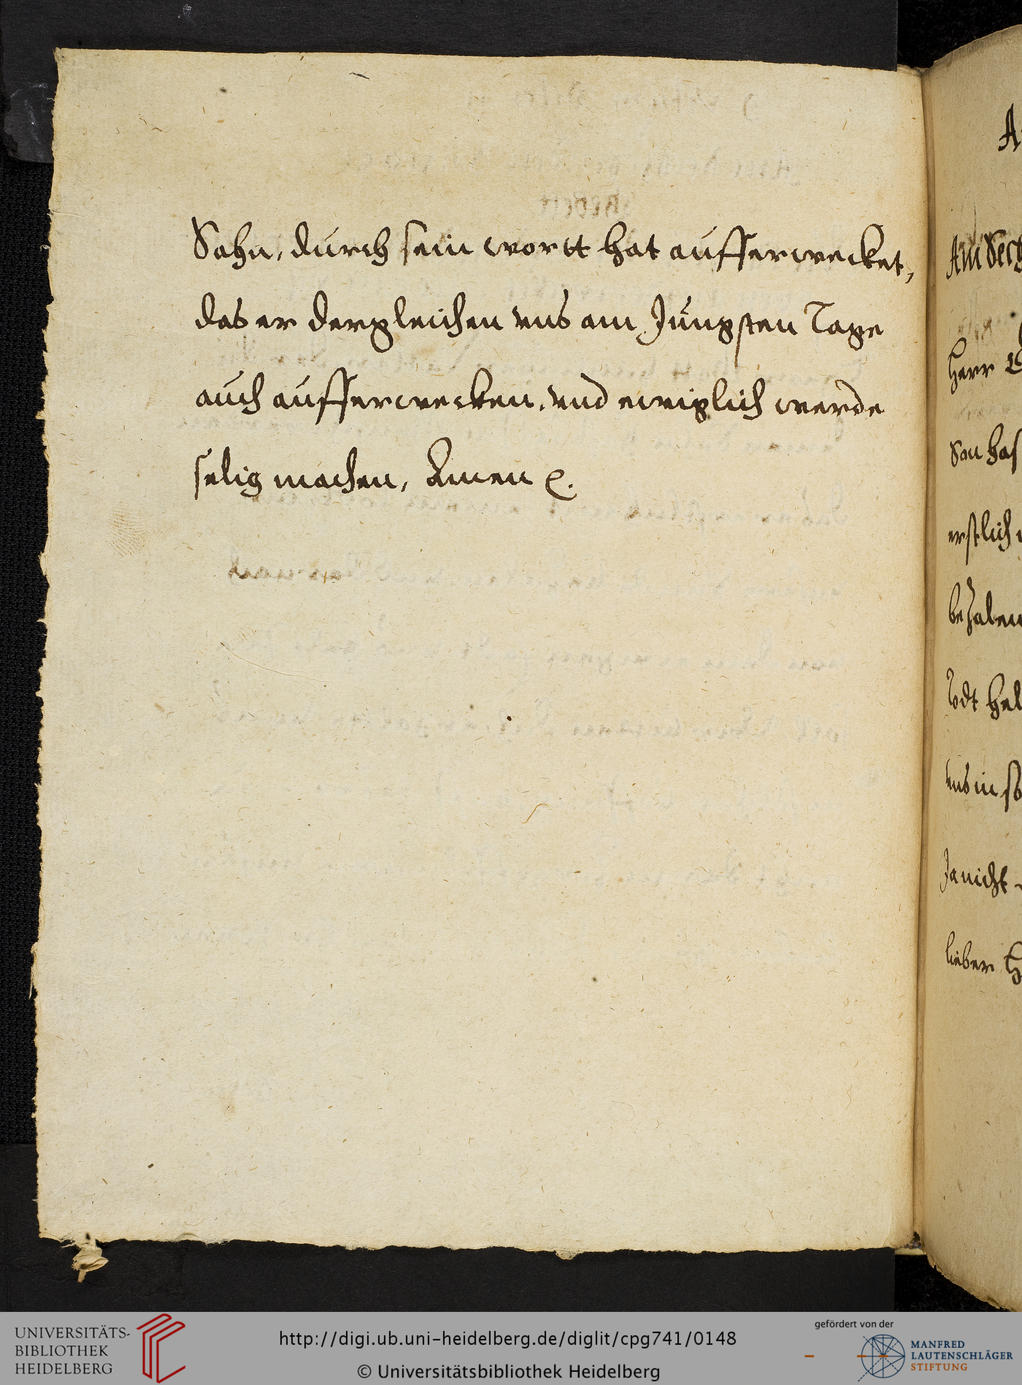 Sohn, durch sein wortt hat aufferwecket,
das er dergleichen vns am Jüngsten Tage
auch aufferwecken, vnd ewiglich werde
selig machen, Amen ꝛc.
A
Am Sech
Herr
Son has
erstlich
bezalen
Todt hel
vns in so
Ja nicht
lieber
UNIVERSITÄTS-
BIBLIOTHEK
HEIDELBERG
http://digi.ub.uni-heidelberg.de/diglit/cpg741/0148
© Universitätsbibliothek Heidelberg
gefördert von der
MANFRED
LAUTENSCHLÄGER
STIFTUNG